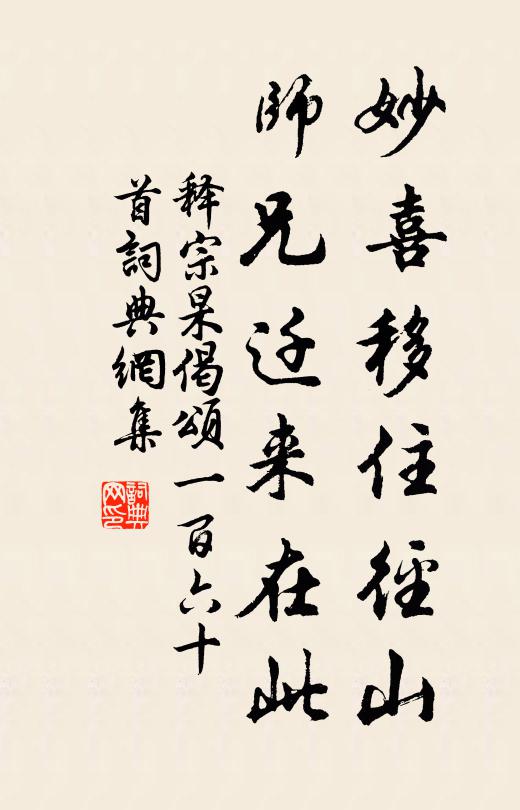 妙喜移住徑山
師兄迁来在此
释宗杲偈頌一百六十
首詞典網集
詞典網印